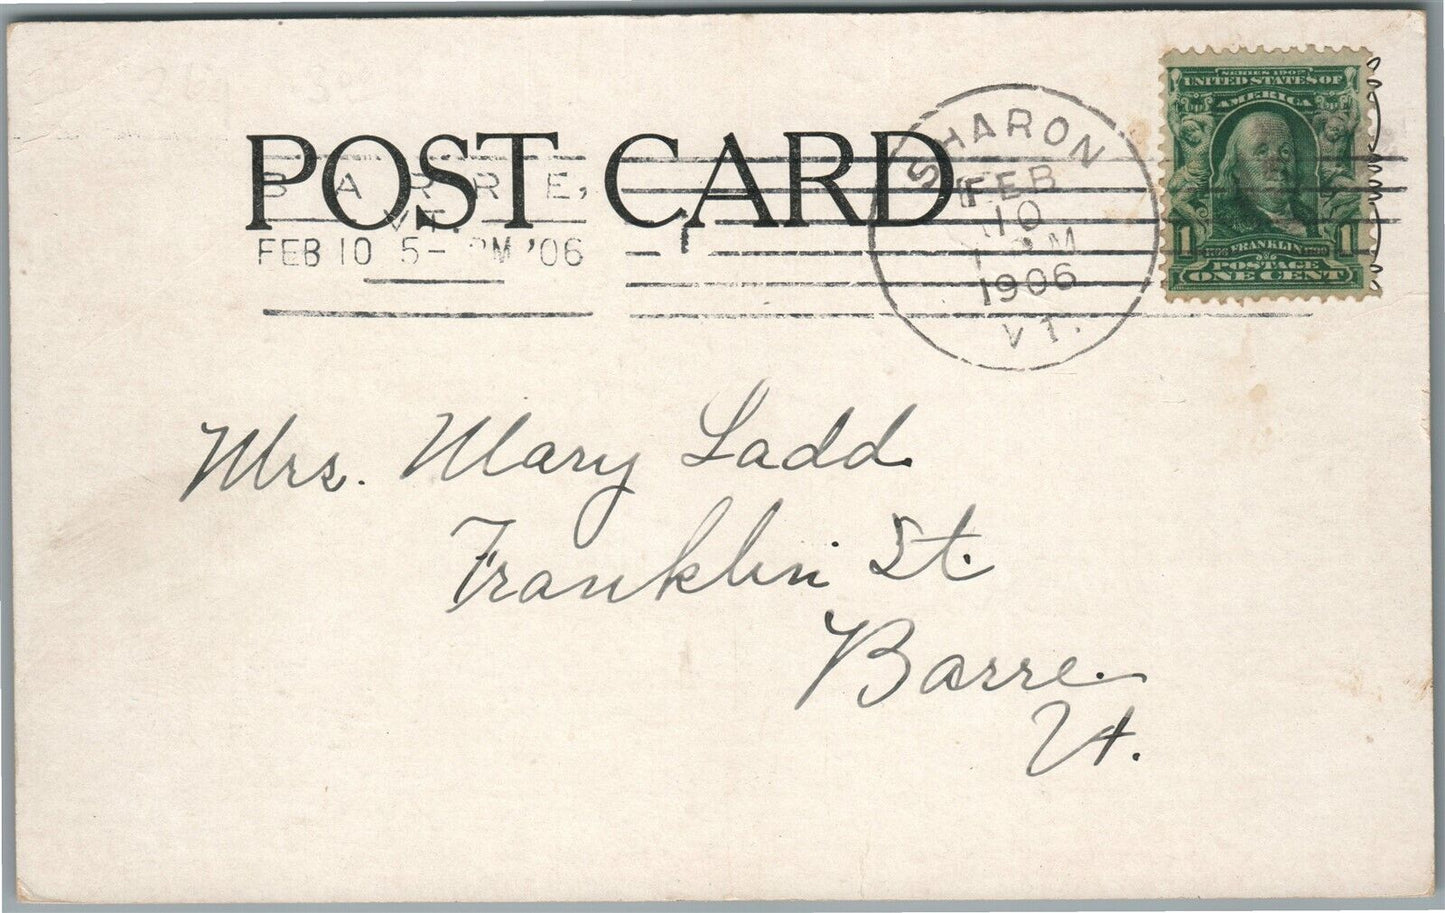 POST CARD
BARRE,
VT.
FEB 10 5- PM '06
1
SHARON
FEB
10
M
1906
VT.
SERIES 1902
UNITED STATES OF
AMERICA
1 FRANKLIN 1
POSTAGE
ONE CENT
Mrs. Mary Ladd
Franklin St.
Barre
Vt.